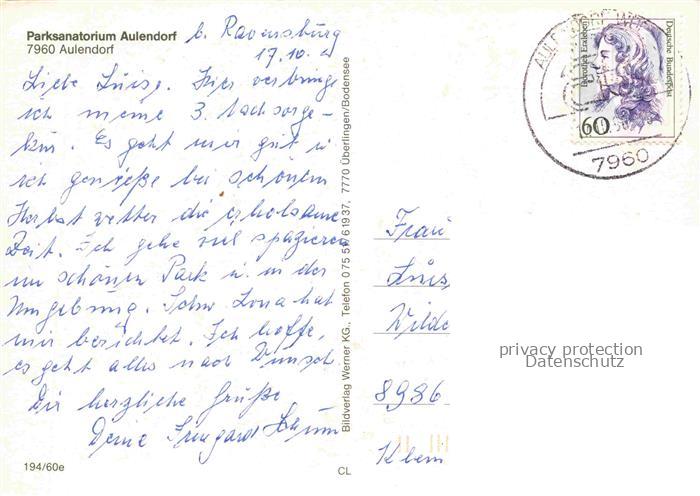 Parksanatorium Aulendorf
7960 Aulendorf
b. Ravensburg
17.10.
Liebe Luise. Hier verbringe
ich meine 3. Nachsorge-
kur. Es geht mir gut u.
ich genieße bei schönem
Herbstwetter die erholsame
Zeit. Ich gehe viel spazieren
im schönen Park u. in der
Umgebung. Schw. Lona hat
mir berichtet. Ich hoffe,
es geht alles nach Wunsch.
Dir herzliche Grüße
Deine Irmgard
194/60e
CL
Bildverlag Werner KG., Telefon 075 51/61937, 7770 Überlingen/Bodensee
Dorothea Erxleben
Deutsche Bundespost
60
AULENDORF
7960
Frau
Luis
Wilde
8986
privacy protection
Datenschutz